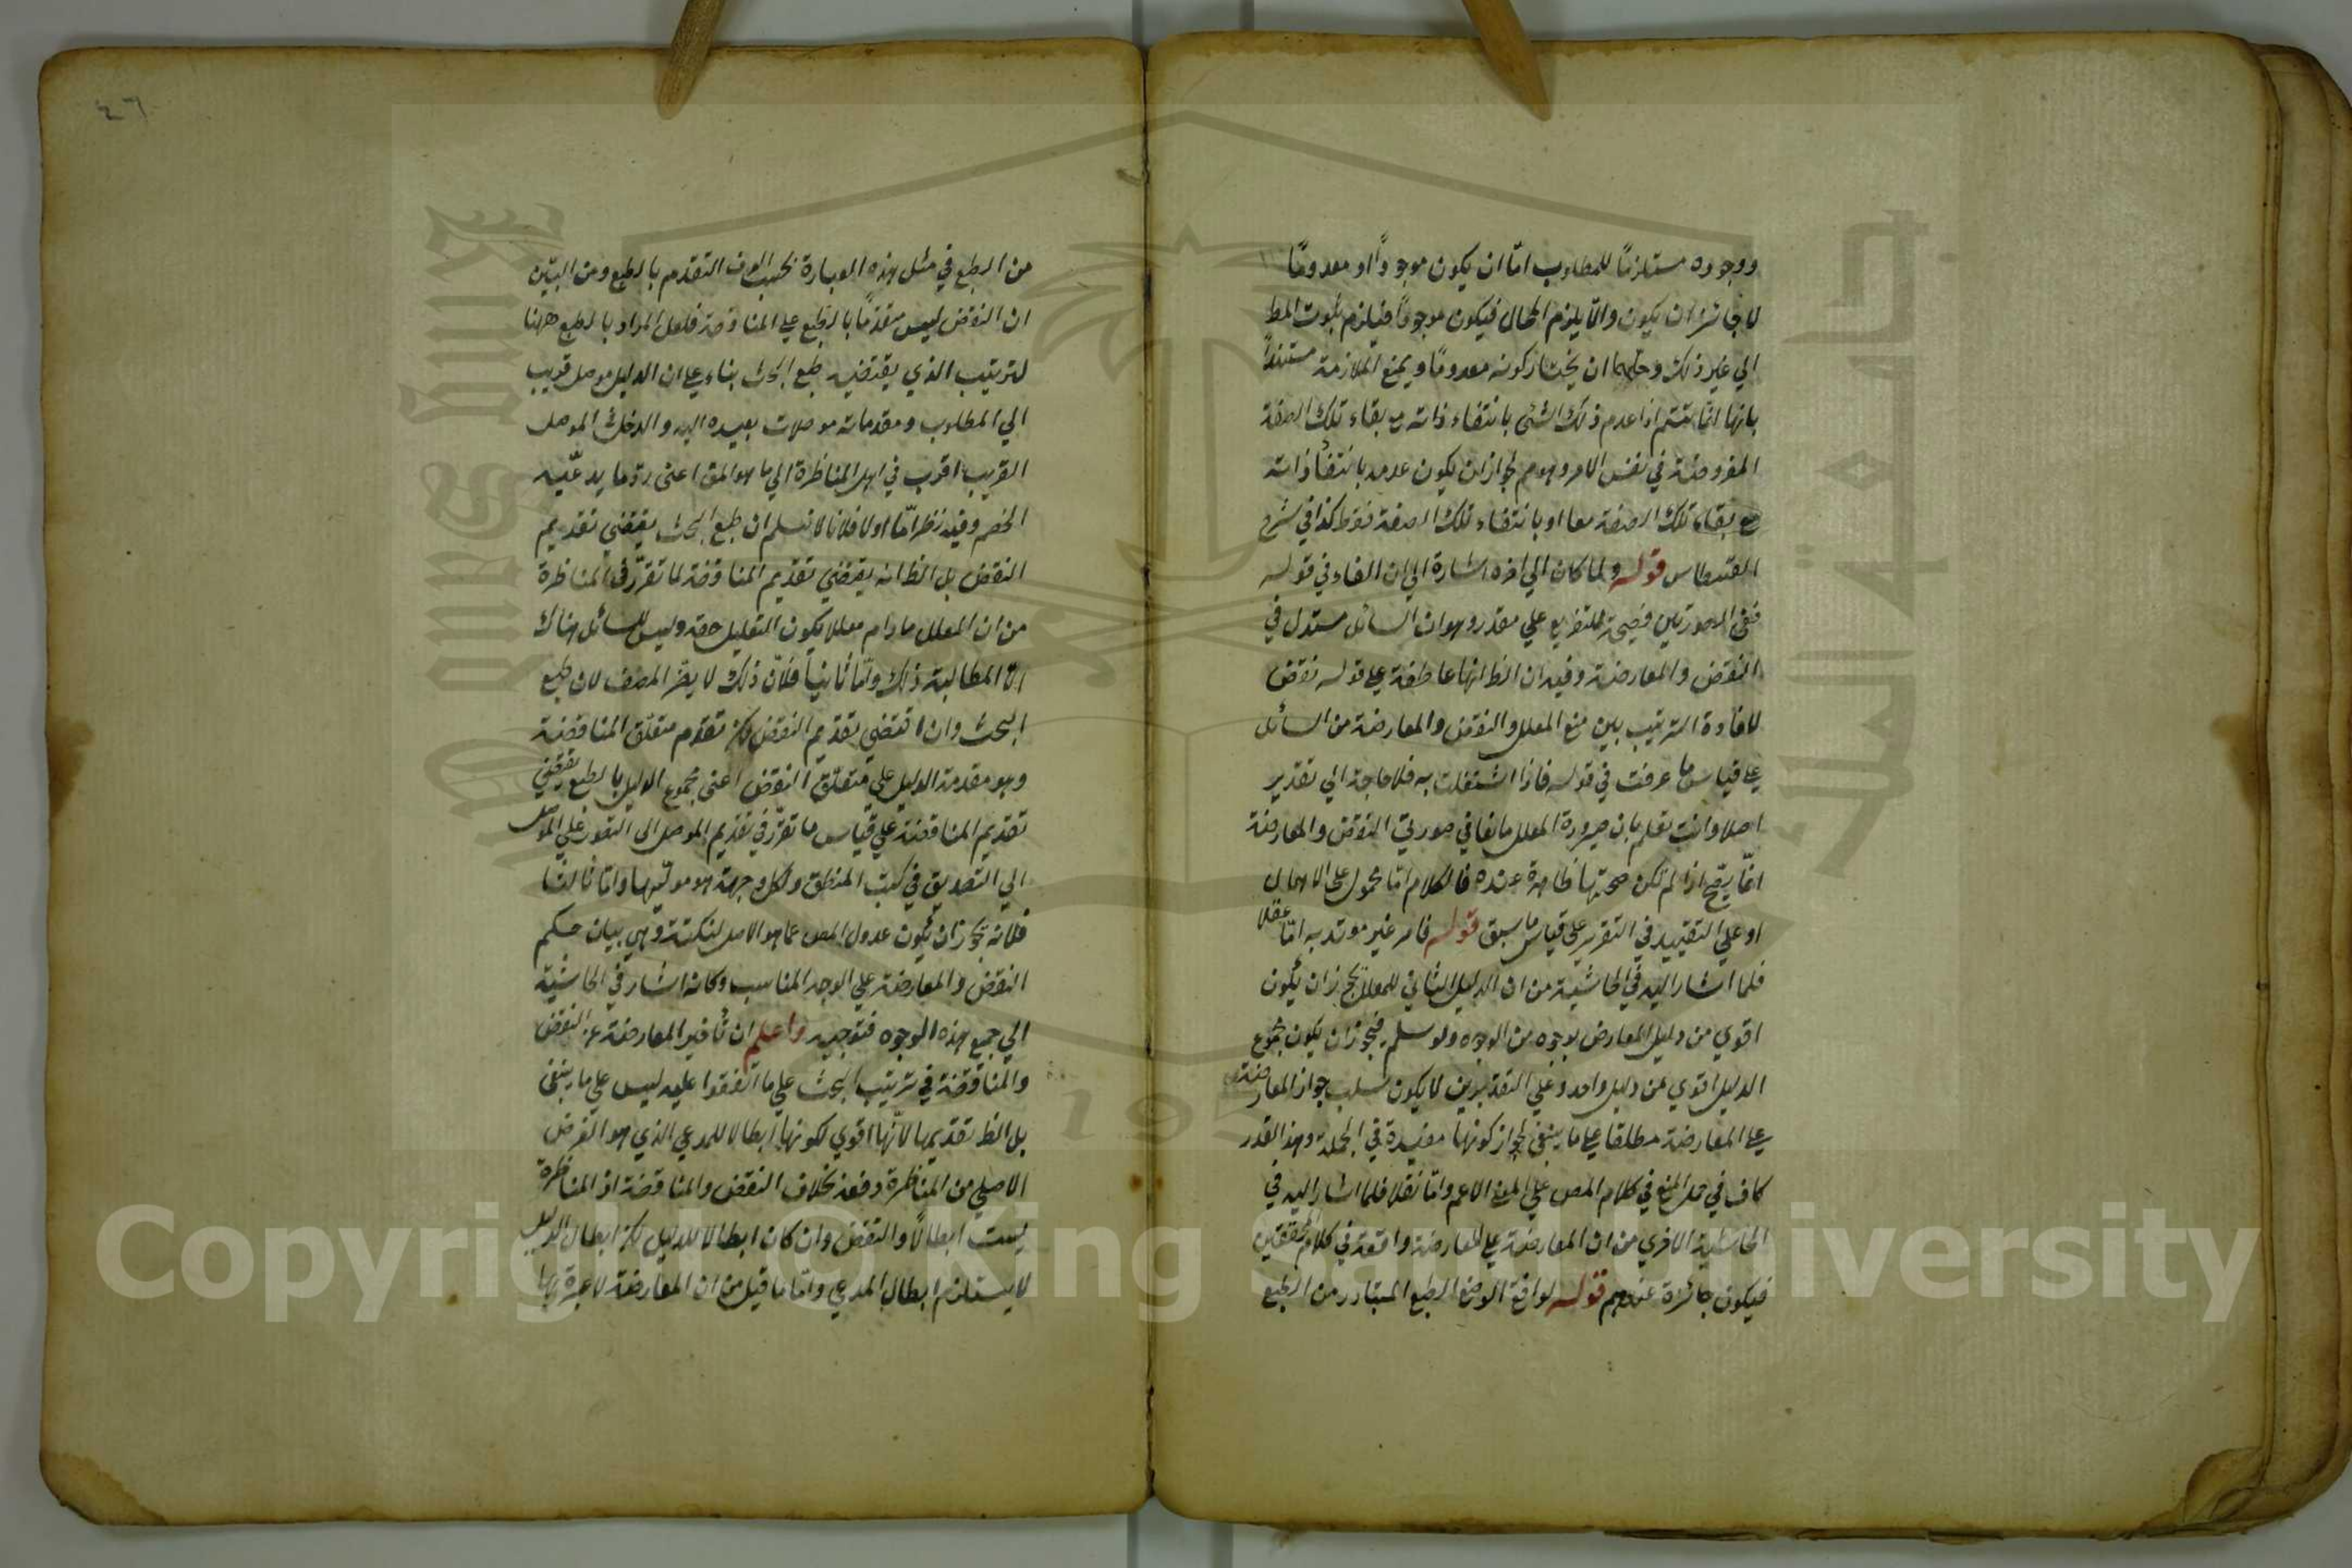 ووجوده مستلزمًا للمطلوب امّا ان يكون موجودًا او معدومًا
لا جائز ان يكون والّا يلزم المحال فيكون موجودًا فيلزم ثبوت المط
الي غير ذلك وحلهما ان يختار كونه معدومًا ويمنع الملازمة مستندًا
بانها انّما تتم اذا عدم ذلك الشئ بانتفاء ذاته مع بقاء تلك الصفة
المفروضة في نفس الامر وهو مم لجواز ان يكون عدمه بانتفاء ذاته
مع بقاء تلك الصفة معا او بانتفاء تلك الصفة فقط كذا في شرح
القسطاس قوله ولما كان الي اخره اشارة الي ان الفاء في قوله
ففي الصورتين فصيحة للتفريع علي مقدر وهو ان السائل مستدل في
النقض والمعارضة وفيه ان الظ انها عاطفة علي قوله نقض
لافادة الترتيب بين منع المعلل والنقض والمعارضة من السائل
علي قياس ما عرفت في قوله فاذا اشتغلت به فلا حاجة الي تقدير
اصلا وانت تعلم بان صيرورة المعلل مانعا في صورتي النقض والمعارضة
انّما يصح اذا لم تكن صحتها ظاهرة عنده فالكلام امّا محمول علي الاهمال
او علي التقييد في التقرير علي قياس ما سبق قوله فامر غير موتد به امّا عقلا
فلما اشار اليه في الحاشية من ان الدليل الثاني للمعلل يجوز ان يكون
اقوي من دليل المعارض بوجه من الوجوه ولو سلم فيجوز ان يكون مجموع
الدليل اقوي من دليل واحد وعلي التقديرين لا يكون سلب جواز المعارضة
علي المعارضة مطلقا علي ما ينبغي لجواز كونها مفيدة في الجملة وهذا القدر
كاف في حمل المنع في كلام المص علي المعنى الاعم وامّا نقلا فلما اشار اليه في
الحاشية الاخري من ان المعارضة علي المعارضة واقعة في كلام المحققين
فيكون جائزة عندهم قوله لوافق الوضع الطبع المتبادر من الطبع
٤٦
من الطبع في مثل هذه العبارة بحسب العرف التقدم بالطبع ومن البيّن
ان النقض ليس مقدمًا بالطبع علي المناقضة فلعل المراد بالطبع ههنا
لترتيب الذي يقتضيه طبع البحث بناء علي ان الدليل موصل قريب
الي المطلوب ومقدماته موصلات بعيده اليه والدخل في الموصل
القريب اقرب في اهل المناظرة الي ما هو المق اعني رد ما يدعيه
الخصم وفيه نظر امّا اولا فلانا لا نسلم ان طبع البحث يقتضي تقديم
النقض بل الظ انه يقتضي تقديم المناقضة لما تقرر في المناظرة
من ان المعلل ما دام معللا يكون التعليل حقه وليس للسائل هناك
الا المطالبة ذلك وامّا ثانيًا فلانّ ذلك لا يضر المصنف لان طبع
البحث وان اقتضي تقديم النقض لكن تقدم متعلق المناقضة
وهو مقدمة الدليل علي متعلق النقض اعني مجموع الدليل بالطبع يقتضي
تقديم المناقضة علي قياس ما تقرر في تقديم الموصل الى التصور علي الموصل
الي التصديق في كتب المنطق ولكل وجهة هو موليها وامّا ثالثا
فلانه يجوز ان يكون عدول المص عما هو الاصل لنكتة وهي بيان حكم
النقض والمعارضة علي الوجه المناسب وكانه اشار في الحاشية
الي جميع هذه الوجوه فتوجيه واعلم ان تأخير المعارضة عن النقض
والمناقضة في ترتيب البحث علي ما اتفقوا عليه ليس علي ما ينبغي
بل الظ تقديمها لانّها اقوي لكونها ابطالا للمدعي الذي هو الغرض
الاصلي من المناظرة دفعه بخلاف النقض والمناقضة اذ المناظرة
ليست ابطالًا والنقض وان كان ابطالا للدليل لكن ابطال الدليل
لا يستلزم ابطال المدعي وامّا ما قيل من ان المعارضة لا عبرة بها
Copyright © King Saud University
King Saud University
جامعة الملك سعود